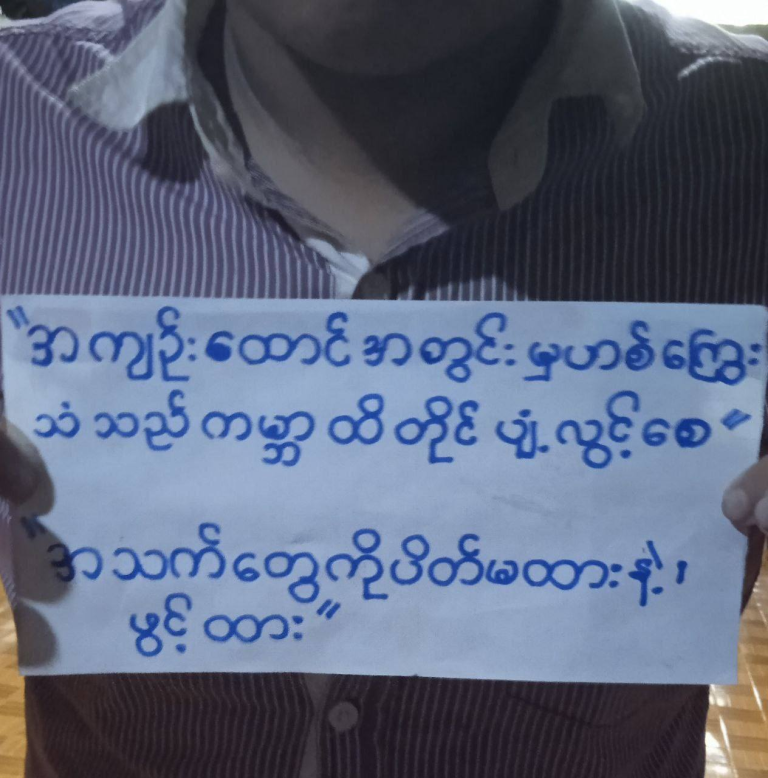 "အကျဉ်းထောင်အတွင်းမှဟစ်ကြွေး
သံသည်ကမ္ဘာထိတိုင်ပျံ့လွင့်စေ"
"အသက်တွေကိုပိတ်မထားနဲ့၊
ဖွင့်ထား"